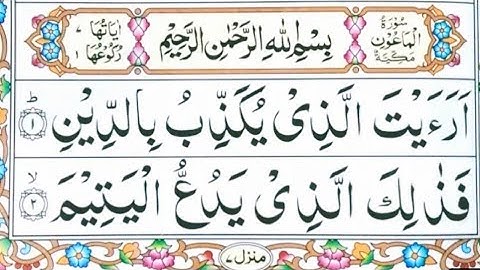 سُوْرَةُ الْمَاعُوْنِ مَكِّيَّةٌ
بِسْمِ اللّٰهِ الرَّحْمٰنِ الرَّحِيْمِ
اٰيَاتُهَا ٧ رُكُوْعُهَا ١
اَرَءَيْتَ الَّذِىْ يُكَذِّبُ بِالدِّيْنِ ؕ ١
فَذٰلِكَ الَّذِىْ يَدُعُّ الْيَتِيْمَ ۙ ٢
منزل ٧